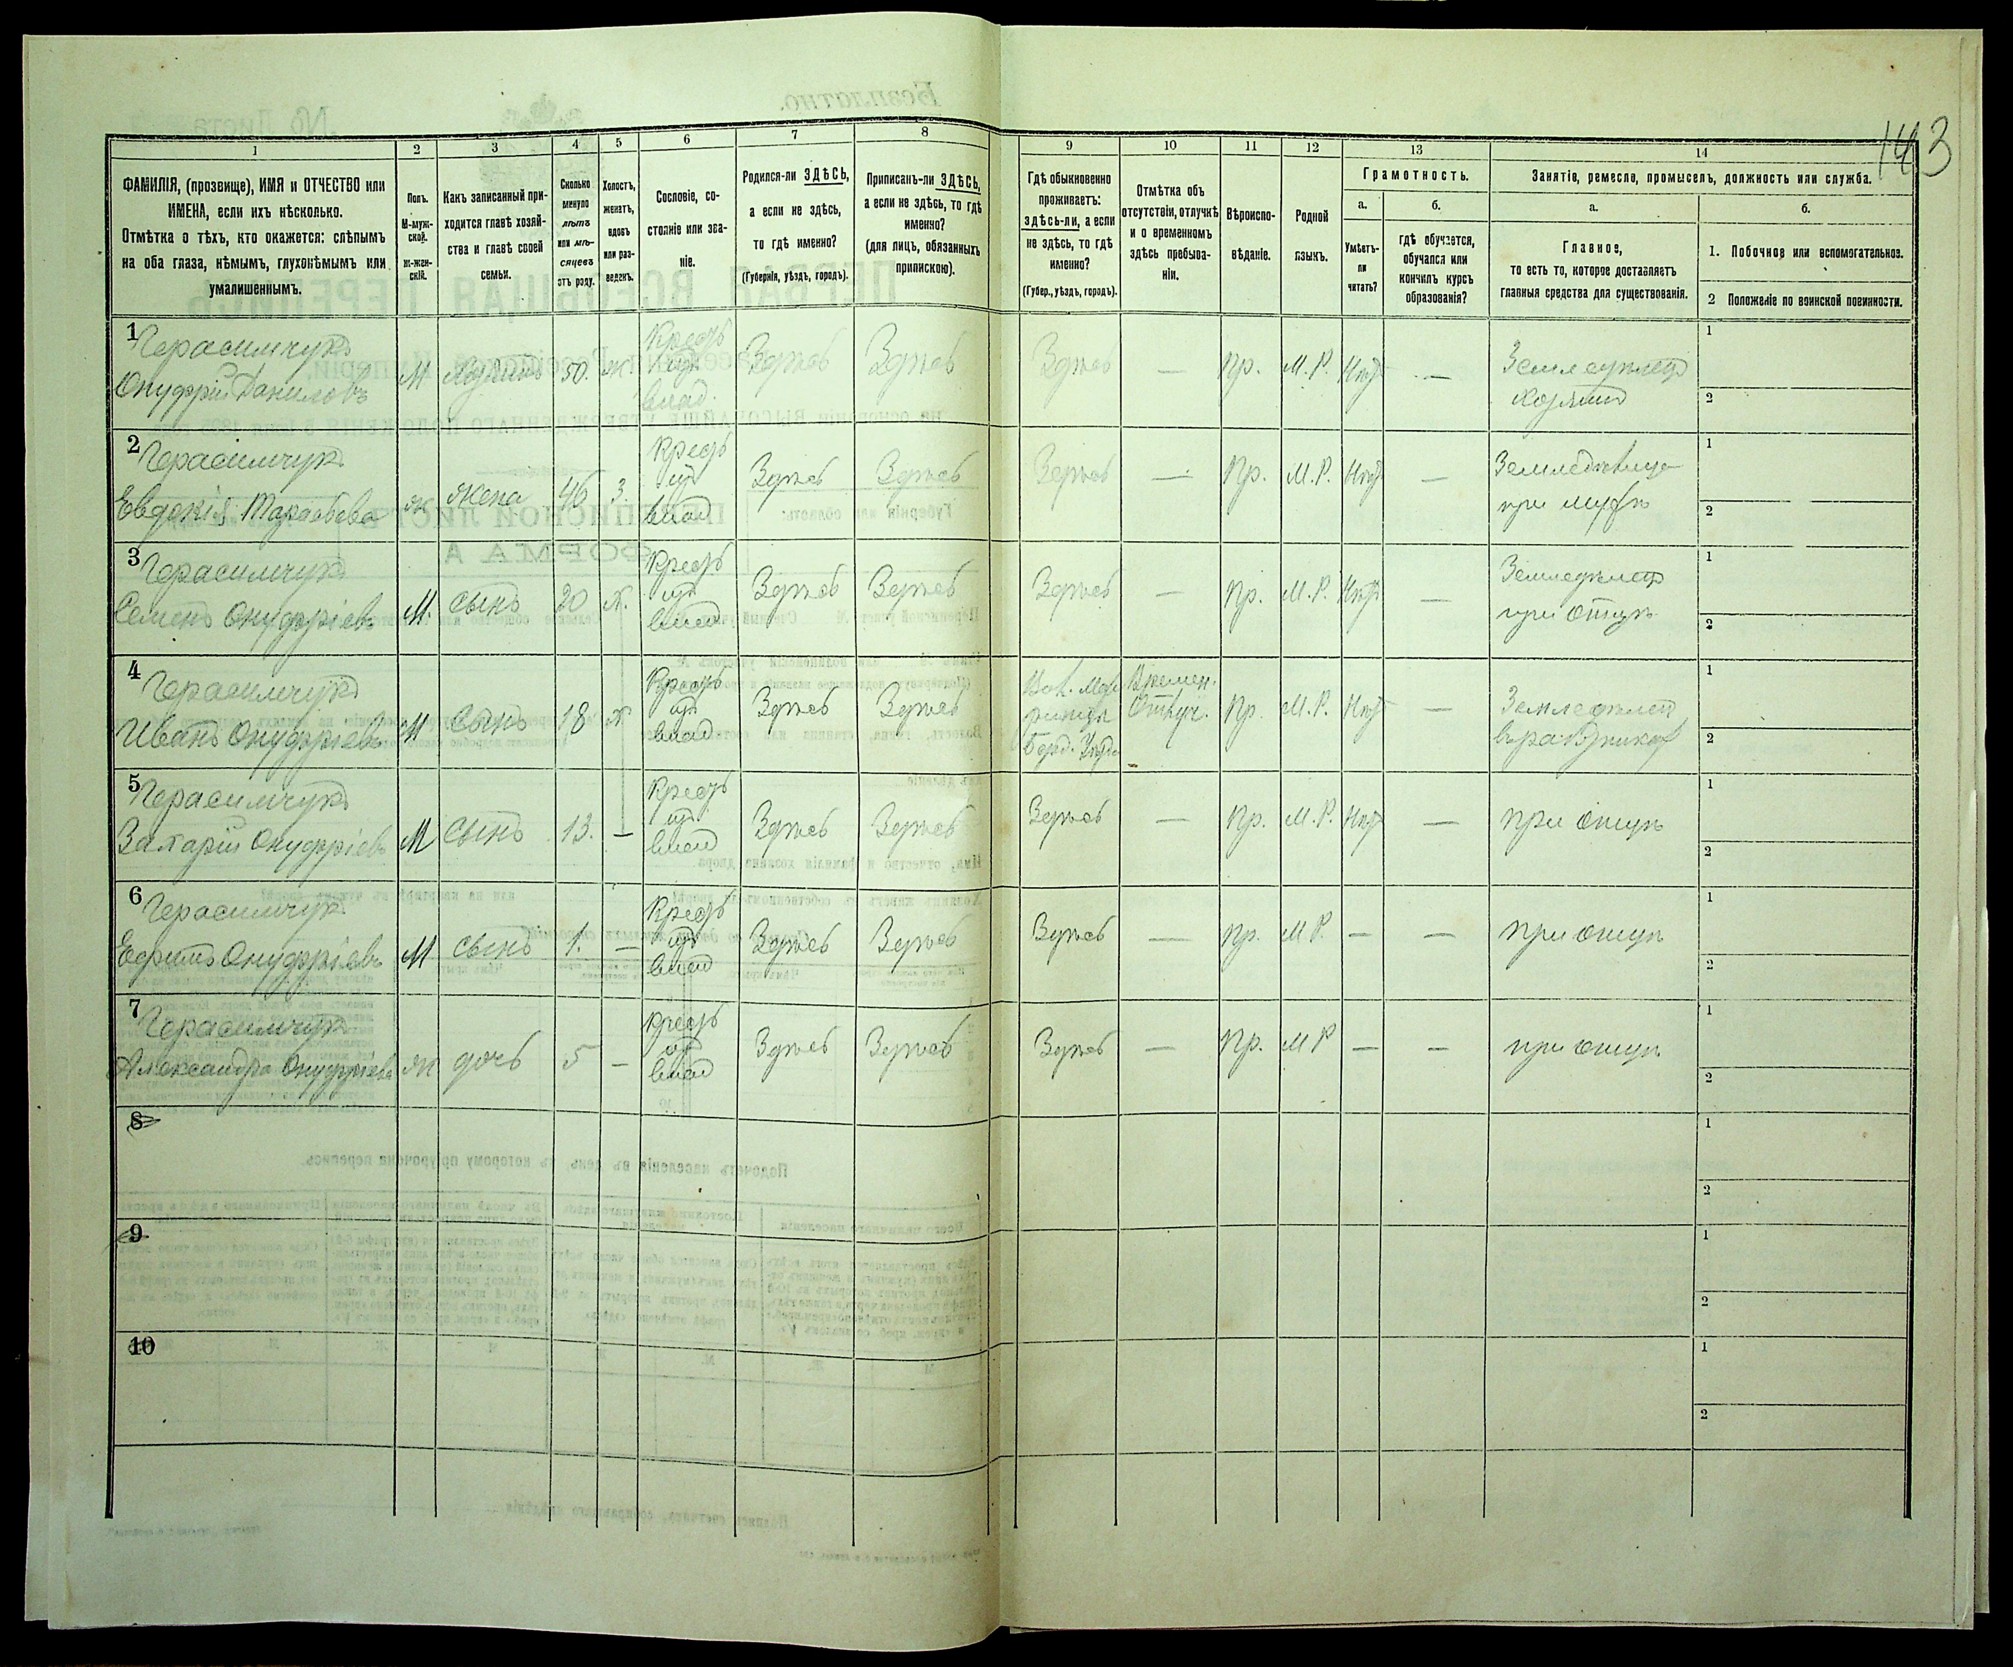 143
1 2 3 4 5 6 7 8 9 10 11 12 13 14
ФАМИЛІЯ, (прозвище), ИМЯ и ОТЧЕСТВО или
ИМЕНА, если ихъ нѣсколько.
Отмѣтка о тѣхъ, кто окажется: слѣпымъ
на оба глаза, нѣмымъ, глухонѣмымъ или
умалишеннымъ.
Полъ.
М-муж-
ской.
Ж-жен-
скій.
Какъ записанный при-
ходится главѣ хозяй-
ства и главѣ своей
семьи.
Сколько
минуло
лѣтъ
или мѣ-
сяцевъ
отъ роду.
Холостъ,
женатъ,
вдовъ
или раз-
веденъ.
Сословіе, со-
стояніе или зва-
ніе.
Родился-ли ЗДѢСЬ,
а если не здѣсь,
то гдѣ именно?
(Губернія, уѣздъ, городъ).
Приписанъ-ли ЗДѢСЬ,
а если не здѣсь, то гдѣ
именно?
(для лицъ, обязанныхъ
припискою).
Гдѣ обыкновенно
проживаетъ:
здѣсь-ли, а если
не здѣсь, то гдѣ
именно?
(Губер., уѣздъ, городъ).
Отмѣтка объ
отсутствіи, отлучкѣ
и о временномъ
здѣсь пребыва-
ніи.
Вѣроиспо-
вѣданіе.
Родной
языкъ.
Грамотность.
а.
Умѣетъ-
ли
читать?
б.
гдѣ обучается,
обучался или
кончилъ курсъ
образованія?
Занятіе, ремесло, промыселъ, должность или служба.
а.
Главное,
то есть то, которое доставляетъ
главныя средства для существованія.
б.
1. Побочное или вспомогательное.
2 Положеніе по воинской повинности.
1 Герасимчукъ
Онуфрій Даниловъ
М 50. Ж
Крест.
влад.
Здѣсь Здѣсь Здѣсь — Пр. М.Р. Нѣт —
1
2
2 Герасимчук
Евдокія Тарасова
ж жена 46 З.
Крест
влад
Здѣсь Здѣсь Здѣсь — Пр. М.Р. Нѣт —
при мужѣ
1
2
3 Герасимчукъ
Семенъ Онуфріевъ
М. сынъ 20 Х.
Крест
влад
Здѣсь Здѣсь Здѣсь — Пр. М.Р. Нѣт —
Земледѣлец
при отцѣ
1
2
4 Герасимчукъ
Иванъ Онуфріевъ
М сынъ 18 Х
Крест
влад
Здѣсь Здѣсь
Бард. Уѣзда
Времен.
Отлуч.
Пр. М.Р. Нѣт —
1
2
5 Герасимчукъ
Захарій Онуфріевъ
М сынъ 13. —
Крест
влад
Здѣсь Здѣсь Здѣсь — Пр. М.Р. Нѣт —
при отцѣ
1
2
6 Герасимчук
Ефимъ Онуфріевъ
М сынъ 1. —
Крест
влад
Здѣсь Здѣсь Здѣсь — Пр. М Р. — —
при отцѣ
1
2
7 Герасимчук
Александра Онуфріева
ж дочь 5 —
Крест
влад
Здѣсь Здѣсь Здѣсь — Пр. М Р — —
при отцѣ
1
2
8
1
2
9
1
2
10
1
2